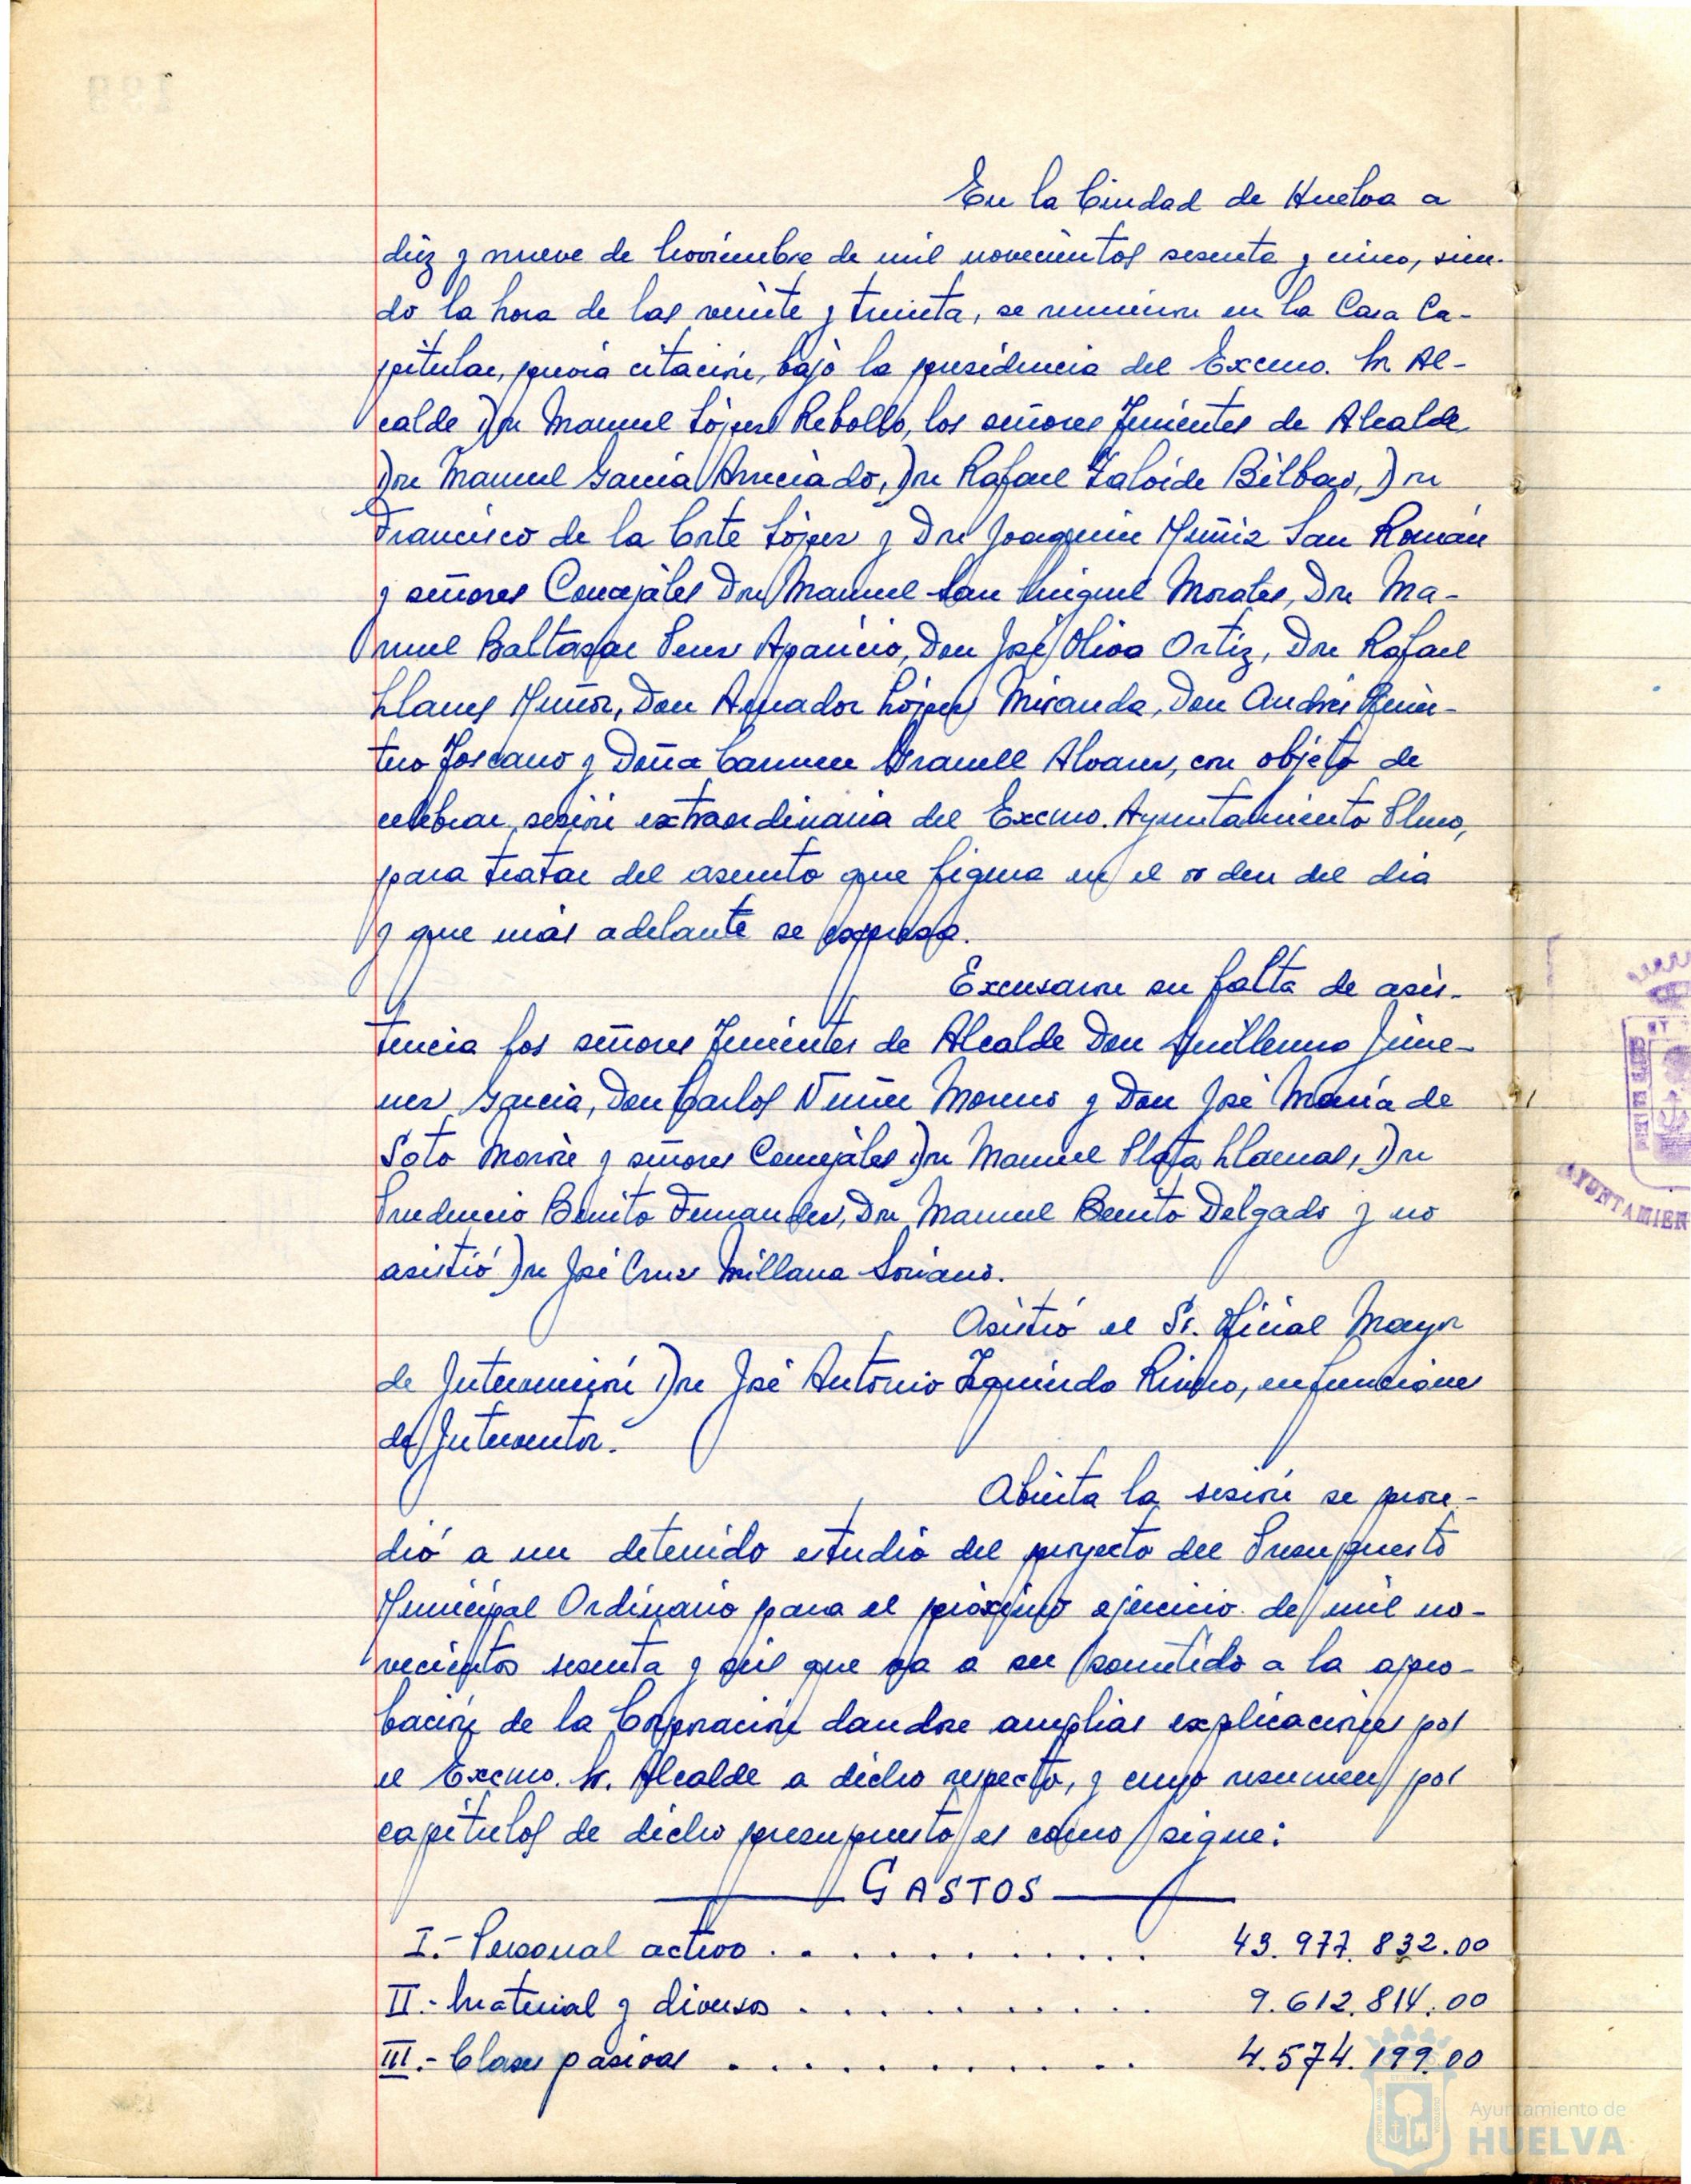 En la Ciudad de Huelva a
diez y nueve de Noviembre de mil novecientos sesenta y cinco, sien-
do la hora de las veinte y treinta, se reunieron en la Casa Ca-
pitular, previa citación, bajo la presidencia del Excmo. Sr. Al-
calde Don Manuel López Rebollo, los señores Tenientes de Alcalde
Don Manuel García Arreciado, Don Rafael Zalvide Bilbao, Don
Francisco de la Corte López y Don Joaquín Muñiz San Román
y señores Concejales Don Manuel San Miguel Morales, Don Ma-
nuel Baltasar Perez Aparicio, Don José Oliva Ortiz, Don Rafael
Llanes Muñoz, Don Amador López Miranda, Don Andrés Quin-
tero Toscano y Doña Carmen Granell Alvarez, con objeto de
celebrar sesión extraordinaria del Excmo. Ayuntamiento Pleno,
para tratar del asunto que figura en el orden del día
y que más adelante se expresa.
Excusaron su falta de asis-
tencia los señores Tenientes de Alcalde Don Guillermo Jime-
nez García, Don Carlos Nuñez Moreno y Don José María de
Soto Morón y señores Concejales Don Manuel Plata Llamas, Don
Prudencio Benito Fernandez, Don Manuel Benito Delgado y no
asistió Don José Cruz Millana Soriano.
Asistió el Sr. Oficial Mayor
de Intervención Don José Antonio Izquierdo Rivero, en funciones
de Interventor.
Abierta la sesión se proce-
dió a un detenido estudio del proyecto del Presupuesto
Municipal Ordinario para el próximo ejercicio de mil no-
vecientos sesenta y seis que va a ser sometido a la apro-
bación de la Corporación dandose amplias explicaciones por
el Excmo. Sr. Alcalde a dicho respecto, y cuyo resumen por
capítulos de dicho presupuesto es como sigue:
GASTOS
I.- Personal activo . . . . . . . . . . . 43.977.832.00
II.- Material y diversos . . . . . . . . . . 9.612.814.00
III.- Clases pasivas . . . . . . . . . . . 4.574.199.00
AYUNTAMIEN
Ayuntamiento de
HUELVA